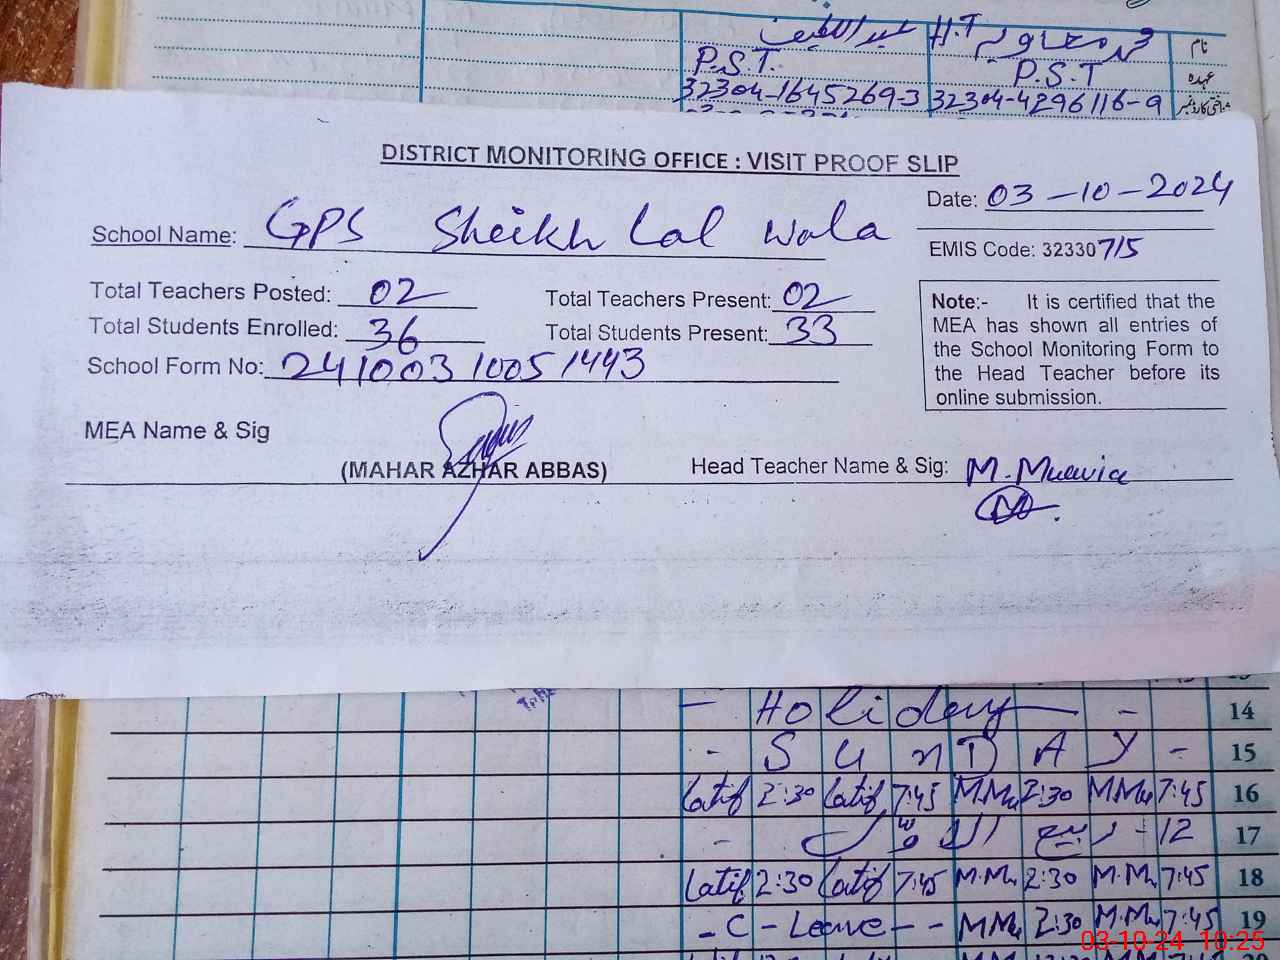 محمد معاویہ H.T عبداللطیف
نام
P.S.T P.S.T.
عہدہ
32304-1645269-3 32304-4296116-9
شناختی کارڈ نمبر
DISTRICT MONITORING OFFICE : VISIT PROOF SLIP
Date: 03-10-2024
School Name: GPS Sheikh Lal wala
EMIS Code: 32330715
Total Teachers Posted: 02 Total Teachers Present: 02
Total Students Enrolled: 36 Total Students Present: 33
School Form No: 241003 1005 1443
Note:- It is certified that the
MEA has shown all entries of
the School Monitoring Form to
the Head Teacher before its
online submission.
MEA Name & Sig
(MAHAR AZHAR ABBAS) Head Teacher Name & Sig: M.Muavia
- Holiday - 14
- S U n D A y - 15
Latif 2:30 Latif 7:45 M.Mu 2:30 M.Mu 7:45 16
- 12 ربیع الاول - 17
Latif 2:30 Latif 7:45 M.Mu 2:30 M.Mu 7:45 18
- C - Leave - - M.Mu 2:30 M.Mu 7:45 19
03-10-24 10:25